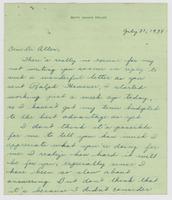 July 31, 1938
Dear Dr. Allen,
There's really no excuse for my
not writing you sooner in reply to
such a wonderful letter as you
sent Ralph. However, I started
working just a week ago today,
so I haven't got my time budgeted
to the best advantage as yet.
I don't think it's possible
for me to tell you how much I
appreciate what you're doing for
me. I realize how hard it will
be for you, especially since I
have been so slow about
answering. But don't think that
it's because I didn't consider